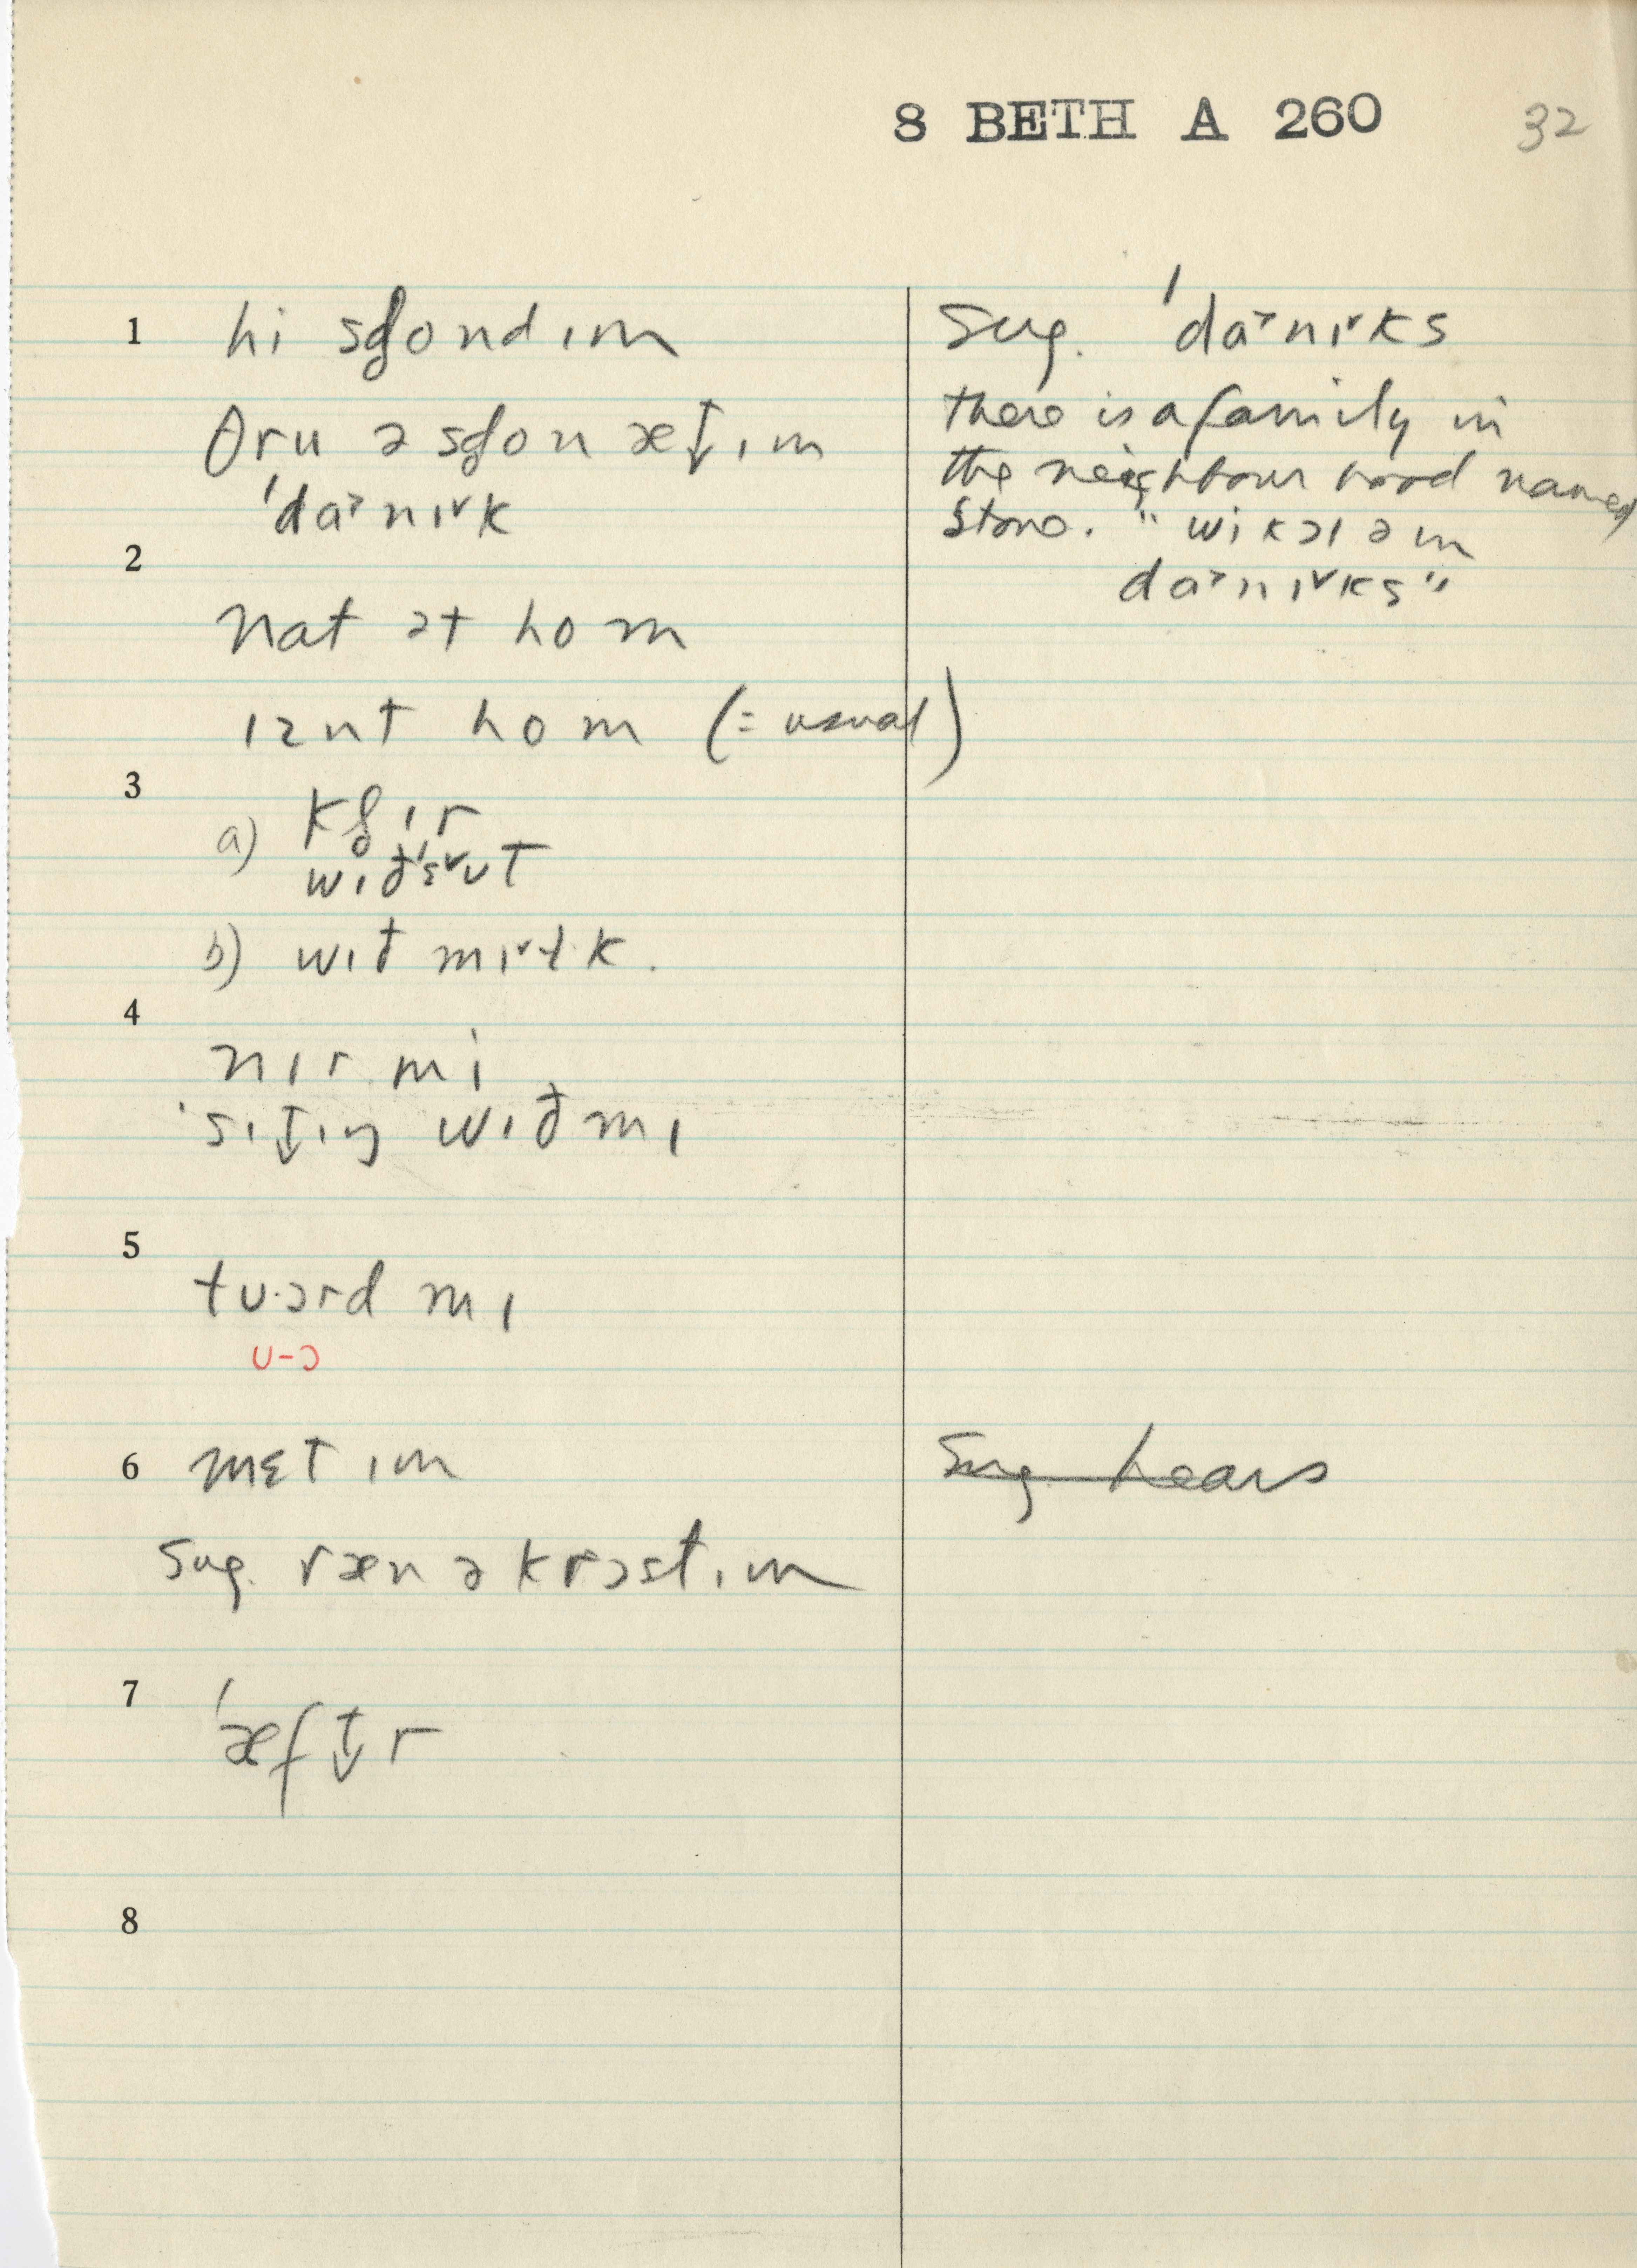 8 BETH A 260 32
1 hi sʈondɪm
θru ə sʈon æt̬ɪm
'da˃nɪ˅k
2
nat ət hom
ɪznt hom (= usual)
3
a) klɪr
wɪð'ʌut
b) wɪð mɪ˅lk.
4
nɪr mi
'sɪt̬ɪŋ wɪð mɪ
5
tu·ərd mɪ
ᴜ-ɔ
6 mɛt ɪm
Sug. ræn əkrɔst ɪm
7
'æft̬r
8
Sug. 'da˃nɪ˅ks
there is a family in
the neighbourhood named
Stone. " wi kɔl əm
da˃nɪ˅ks"
Sug. hears